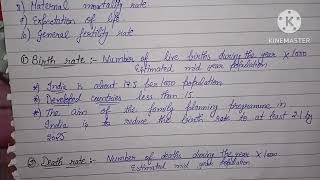 a) Maternal mortality rate
e) Expectation of life
b) General fertility rate
KINEMASTER
① Birth rate :- Number of live births during the year × 1000
Estimated mid year population
* India is about 17.5 per 1000 population
* Developed countries less than 15
* The aim of the family planning programme in
India is to reduce the birth rate to at least 21 by
2025
② Death rate :- Number of deaths during the year × 1000
Estimated mid year population